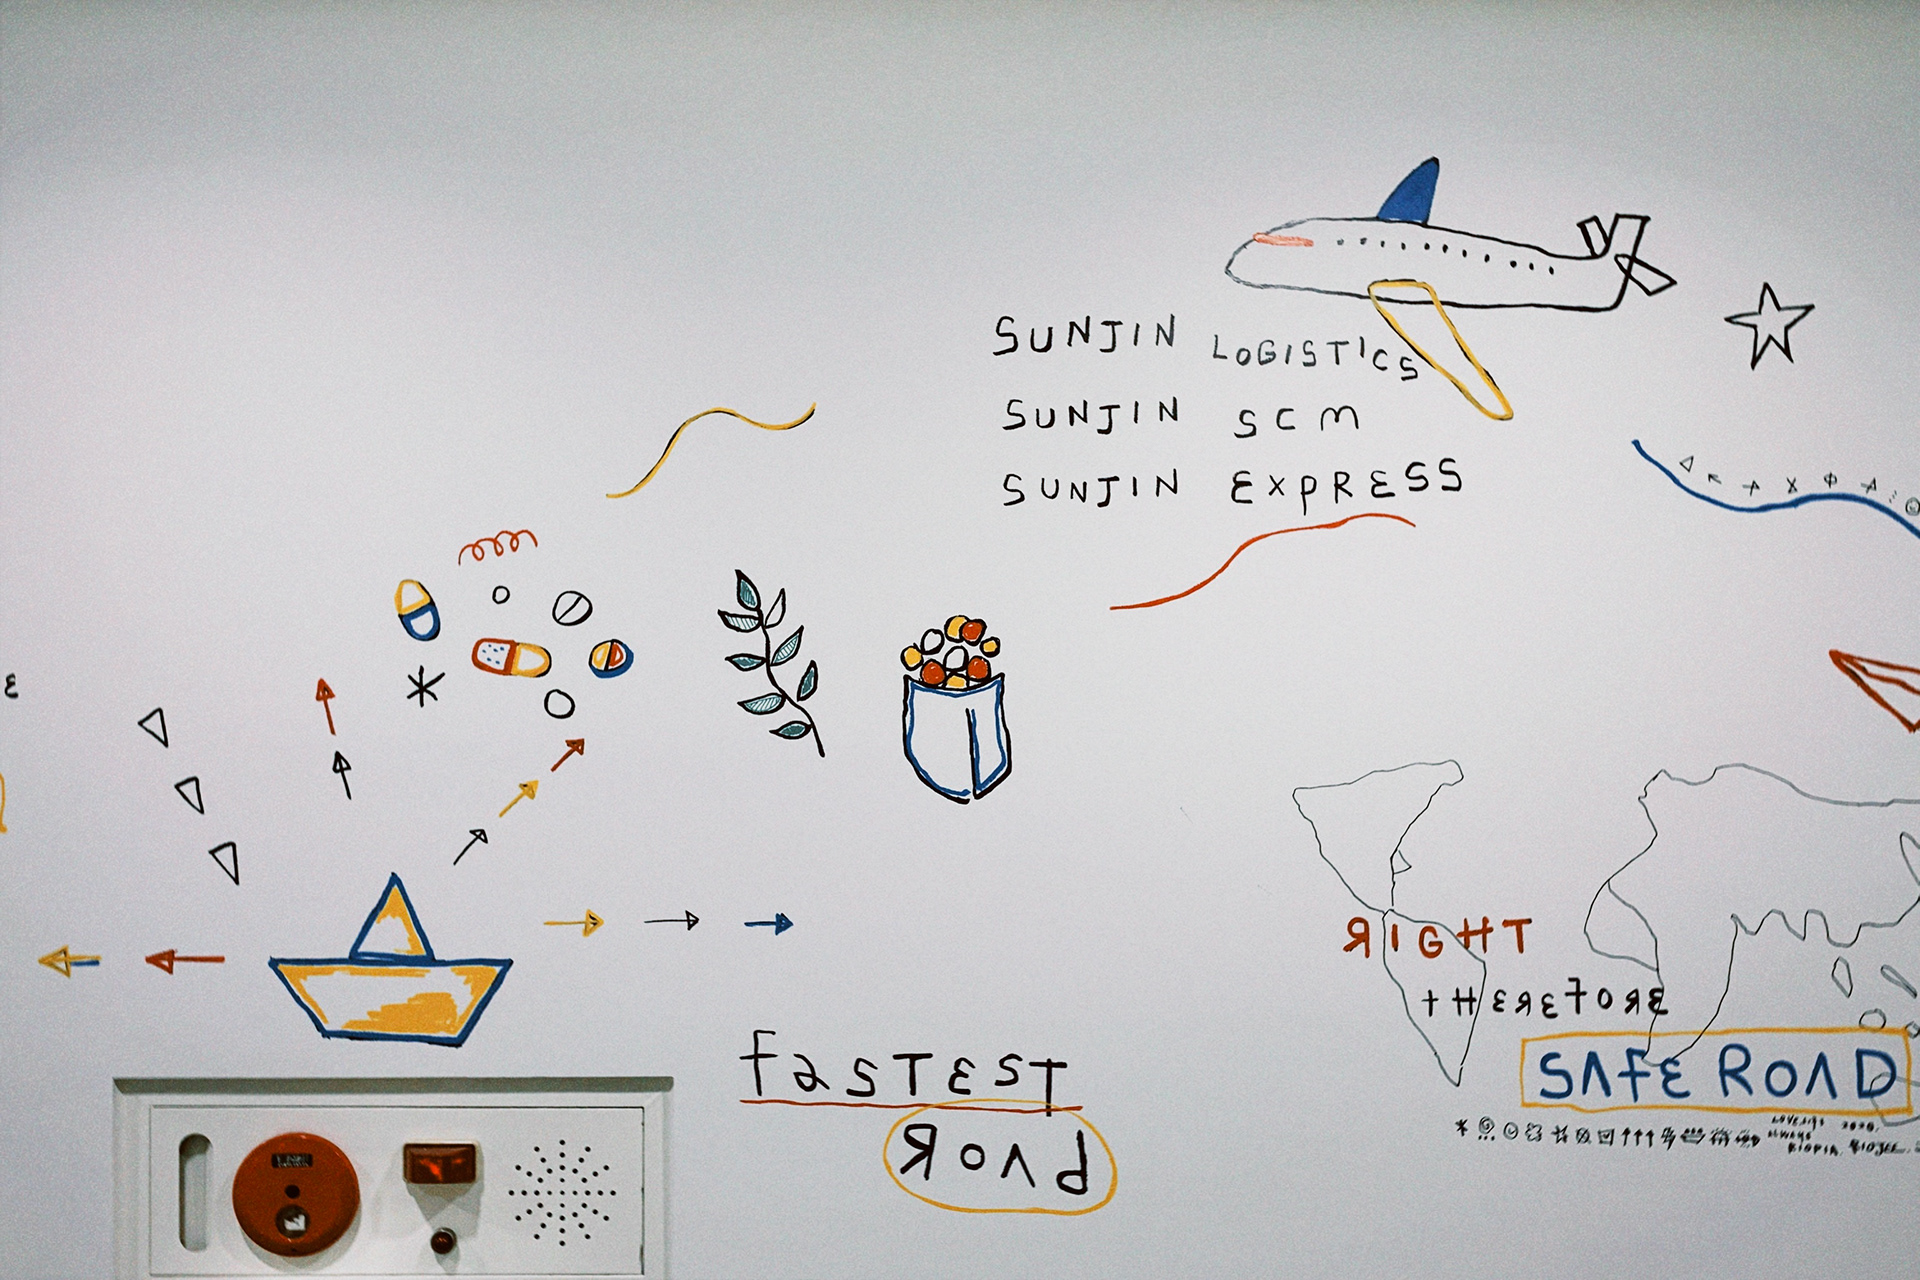 SUNJIN LOGISTICS
SUNJIN SCM
SUNJIN EXPRESS
RIGHT
THEREFORE
SAFE ROAD
FASTEST
ROAD